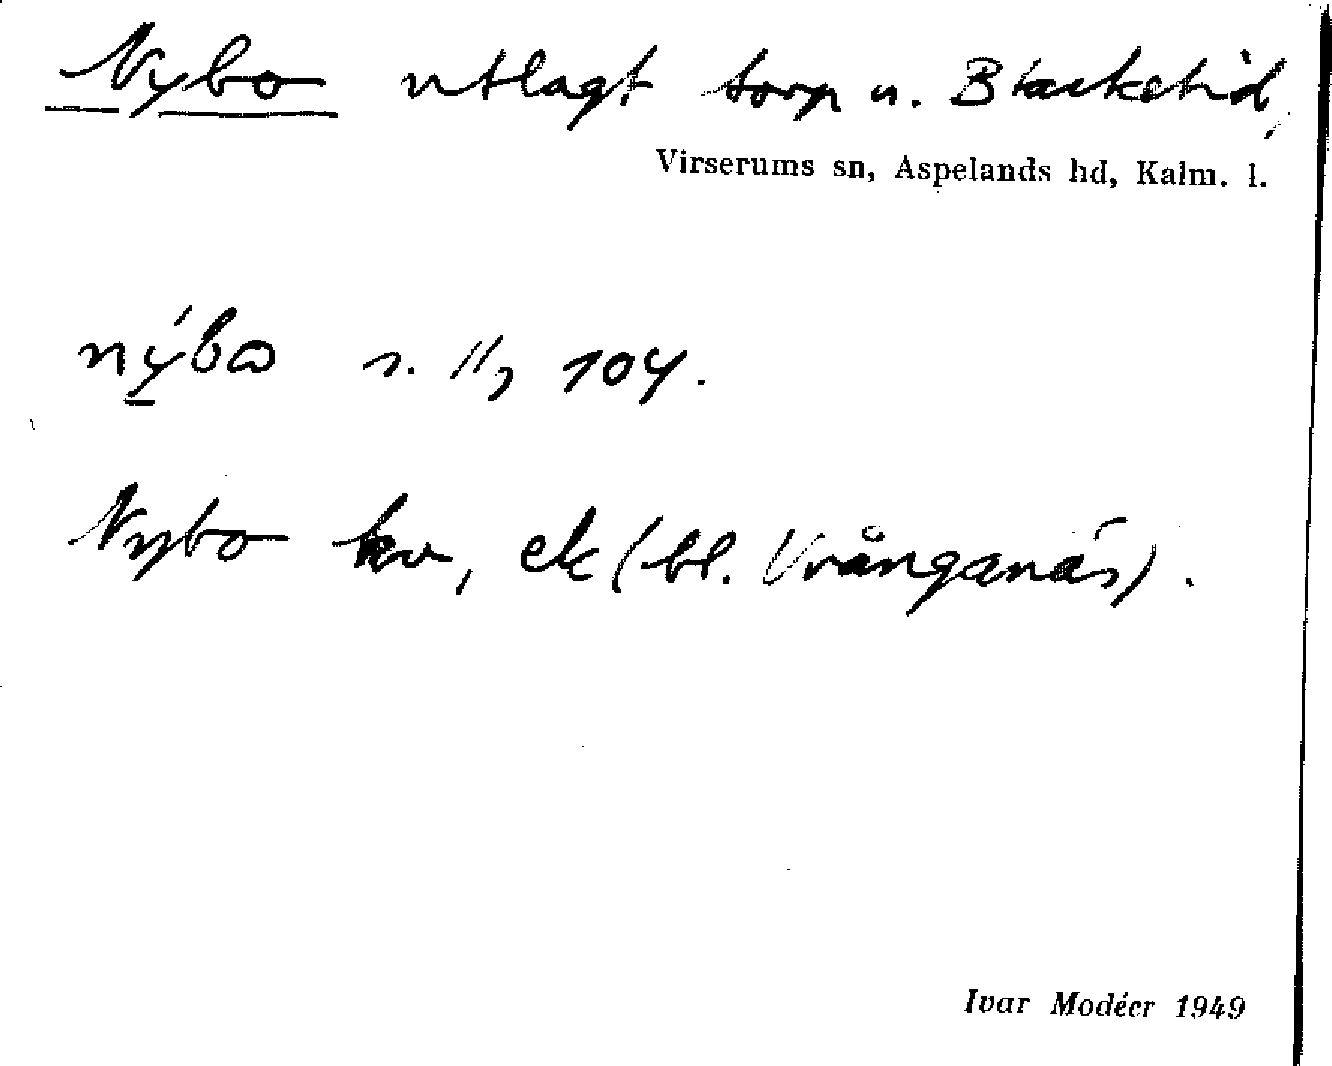 Nybo utlagt torp u.
Virserums sn, Aspelands hd, Kalm. l.
nýbω s. 11, 104.
Nybo kv, ek (bl. Vrånganäs).
Ivar Modéer 1949